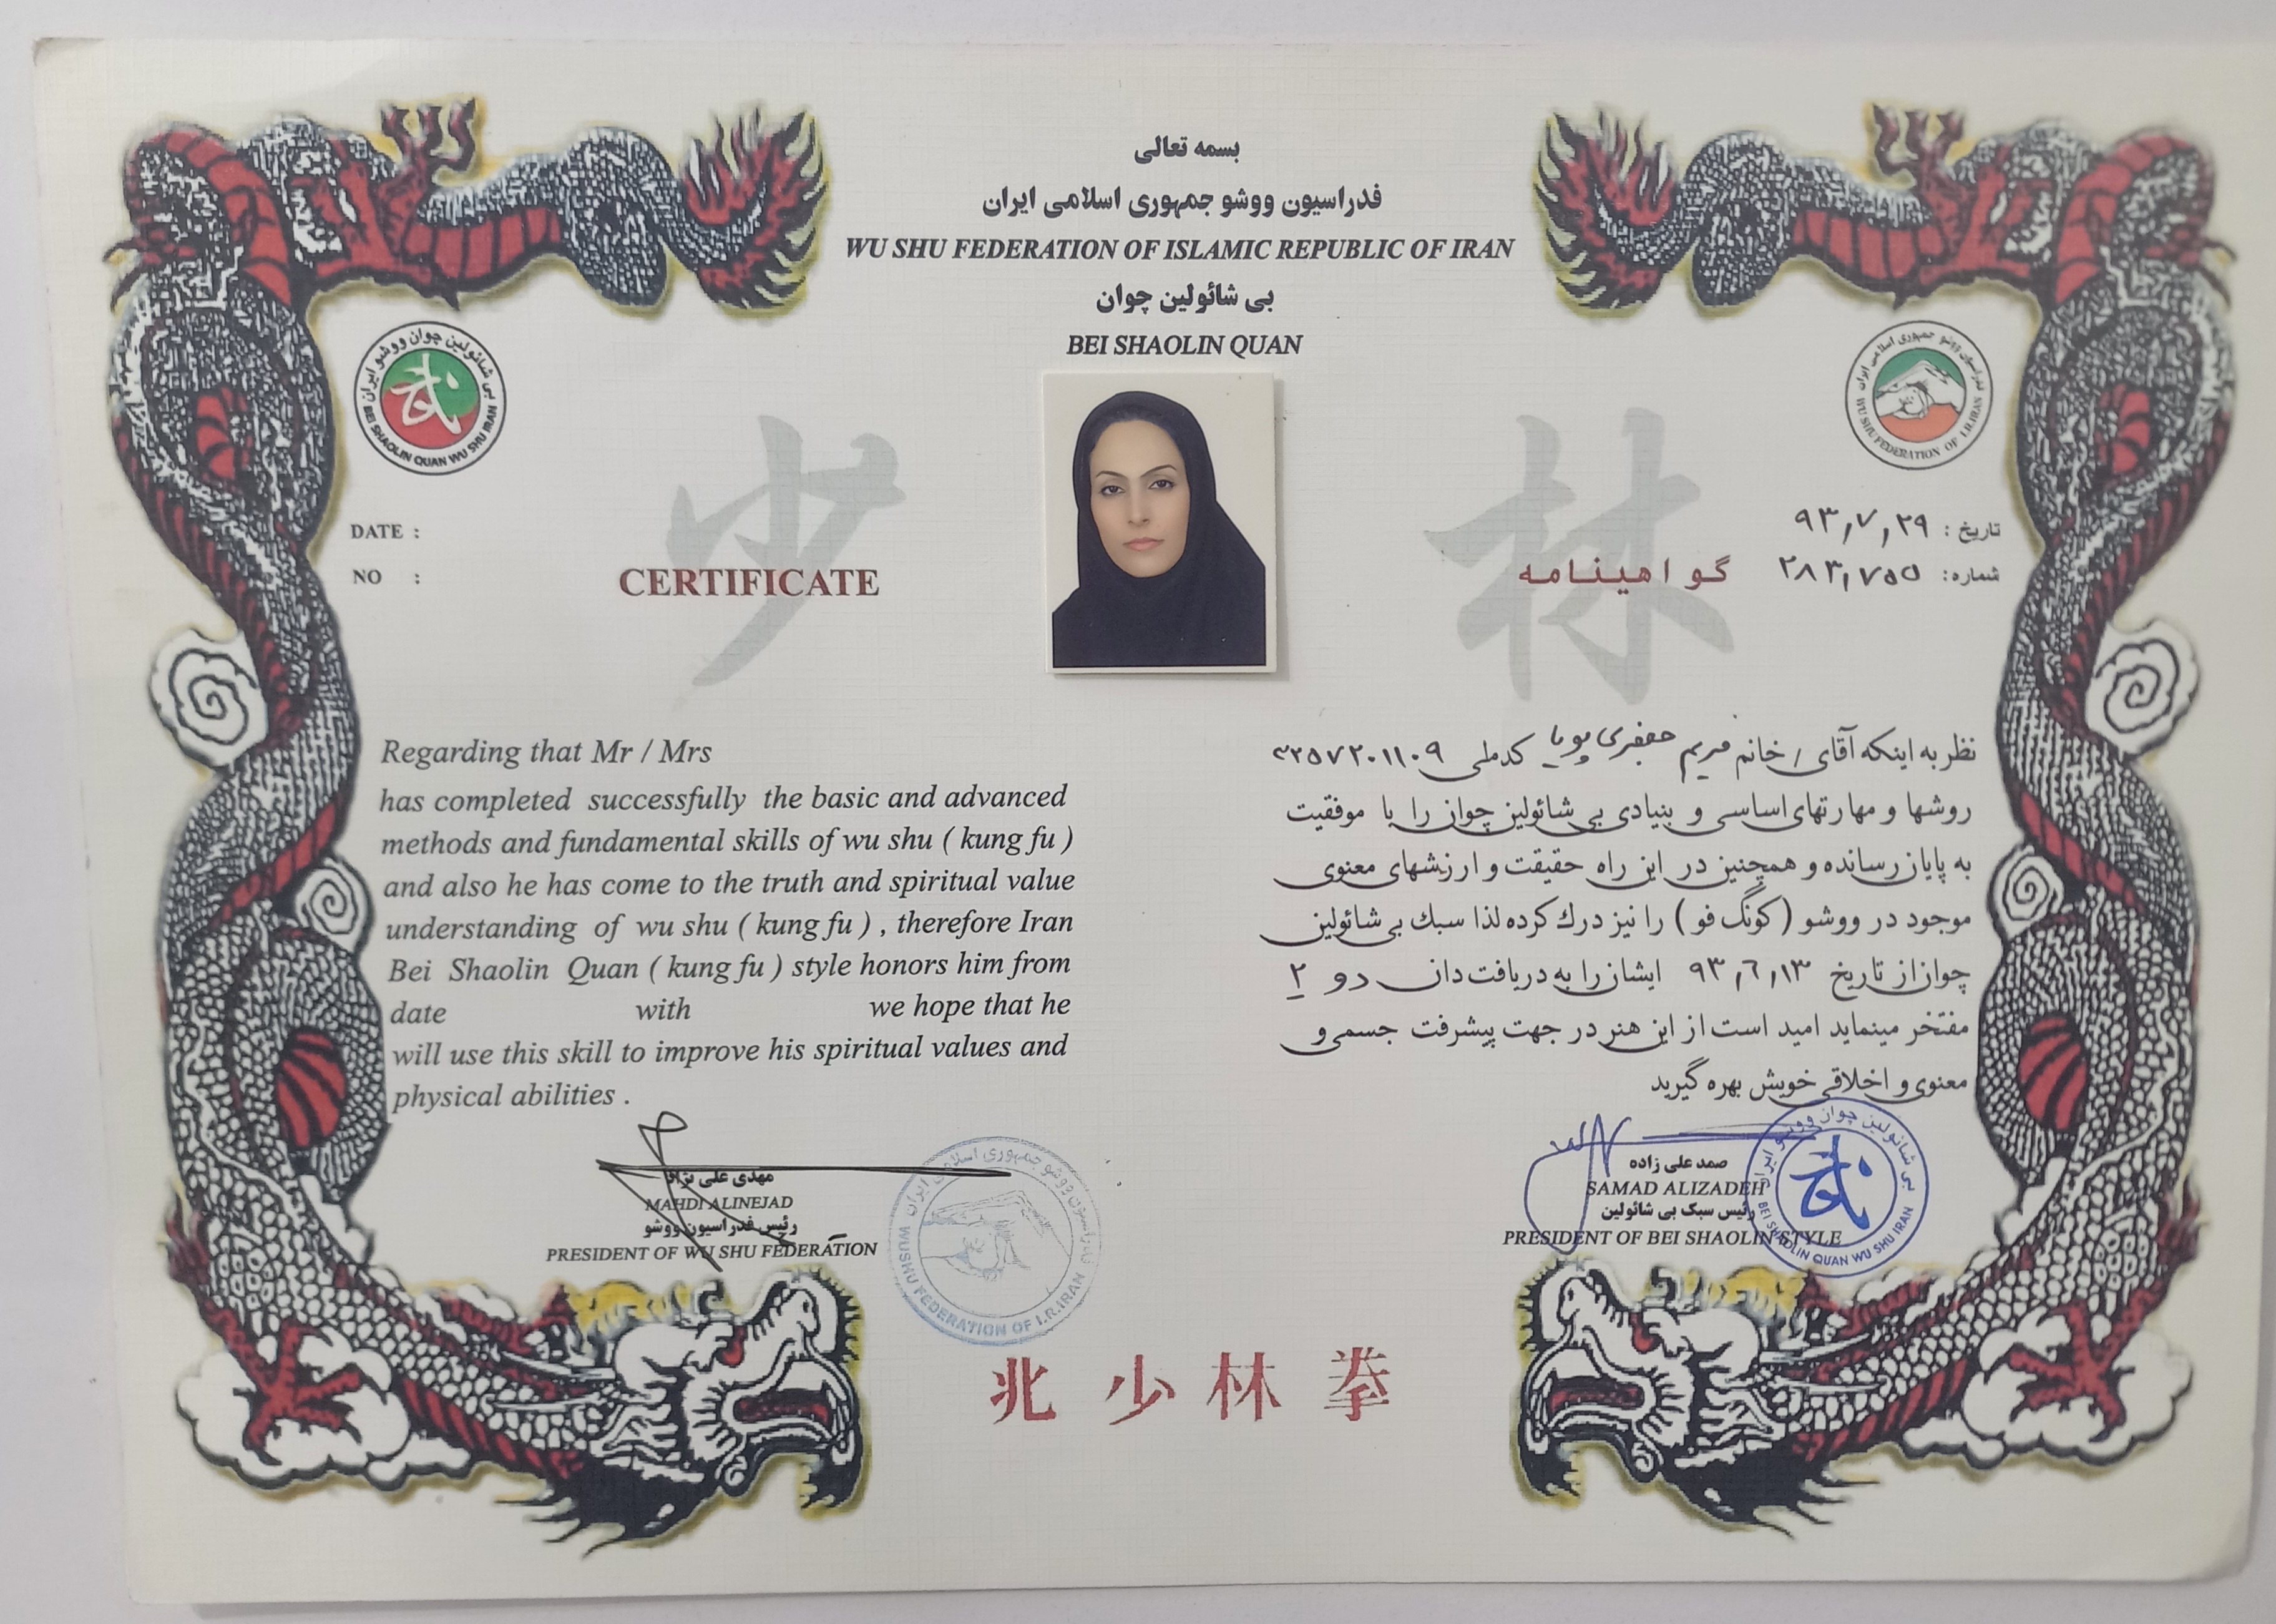 بسمه تعالی
فدراسیون ووشو جمهوری اسلامی ایران
WU SHU FEDERATION OF ISLAMIC REPUBLIC OF IRAN
بی شائولین چوان
BEI SHAOLIN QUAN
بی شائولین چوان ووشو ایران
BEI SHAOLIN QUAN WU SHU IRAN
فدراسیون ووشو جمهوری اسلامی ایران
WU SHU FEDERATION OF I.R.IRAN
少 林
DATE :
NO :
CERTIFICATE
تاریخ : ۹۳,۷,۲۹
شماره: ۲۸۳,۷۵۵
گواهینامه
Regarding that Mr / Mrs
has completed successfully the basic and advanced
methods and fundamental skills of wu shu ( kung fu )
and also he has come to the truth and spiritual value
understanding of wu shu ( kung fu ) , therefore Iran
Bei Shaolin Quan ( kung fu ) style honors him from
date with we hope that he
will use this skill to improve his spiritual values and
physical abilities .
نظر به اینکه آقای / خانم مریم جعفری پویا کدملی
روشها و مهارتهای اساسی و بنیادی بی شائولین چوان را با موفقیت
به پایان رسانده و همچنین در این راه حقیقت و ارزشهای معنوی
موجود در ووشو (کونگ فو) را نیز درك کرده لذا سبك بی شائولین
چوان از تاریخ ۹۳,۶,۱۳ ایشان را به دریافت دان دو ۲
مفتخر مینماید امید است از این هنر در جهت پیشرفت جسمی و
معنوی و اخلاقی خویش بهره گیرید
مهدی علی نژاد
MAHDI ALINEJAD
رئیس فدراسیون ووشو
PRESIDENT OF WU SHU FEDERATION
فدراسیون ووشو جمهوری اسلامی ایران
WUSHU FEDERATION OF I.R.IRAN
صمد علی زاده
SAMAD ALIZADEH
رئیس سبک بی شائولین
PRESIDENT OF BEI SHAOLIN STYLE
بی شائولین چوان ووشو ایران
BEI SHAOLIN QUAN WU SHU IRAN
北 少 林 拳